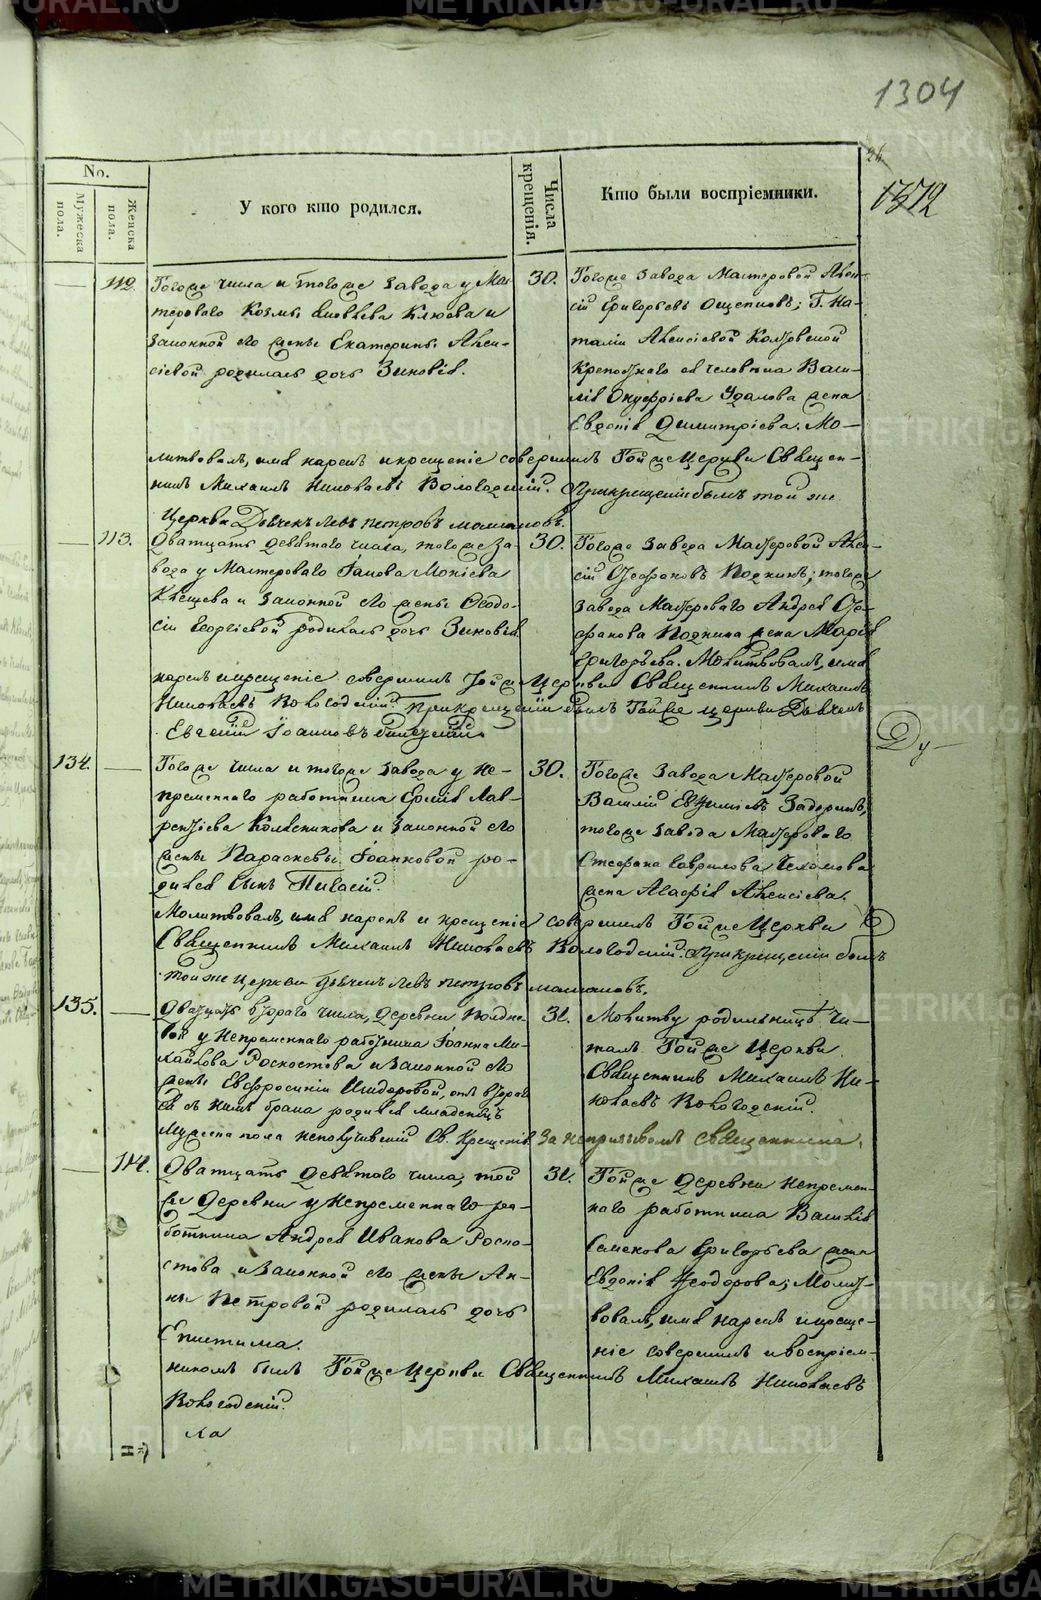 1304
1372
No.
Мужеска пола.
Женска пола.
У кого кто родился.
Числа крещенія.
Кто были воспріемники.
112.
Тогоже числа и тогоже завода у Мас-
тероваго Козмы Яковлева Клюева и
законной его жены Екатерины Алек-
сіевой родилась дочь Зиновія.
30.
Тогоже завода Мастеровой Алек-
сій Григорьевъ Ощепковъ; Г. На-
таліи Алексіевой
Крепостнаго ея человека Васи-
лія Онуфріева Удалова жена
Евдокія Димитріева. Мо-
литвовалъ, имя нарекъ и крещеніе совершилъ Тойже Церкви Священ-
никъ Михаилъ Николаевъ Вологодскій. При крещеніи былъ той же
Церкви Дьячекъ Левъ Петровъ
113.
Дватцать девятаго числа, тогоже за-
вода у Мастероваго Іакова
Клещева и законной его жены Ѳеодо-
сіи Георгіевой родилась дочь Зиновія
30.
Тогоже завода Мастеровой Алек-
сій Стефановъ Подкинъ; тогоже
завода Мастероваго Андрея Сте-
фанова Подкина жена Марія
Григорьева. Молитвовалъ, имя
нарекъ и крещеніе совершилъ Тойже Церкви Священникъ Михаилъ
Николаевъ Вологодскій. При крещеніи былъ Тойже церкви Дьячекъ
Евгеній Іоанновъ
134.
Тогоже числа и тогоже завода у Не-
пременнаго работника Ермія Лав-
рентіева Колесникова и законной его
жены Параскевы Іоанновой ро-
дился сынъ
30.
Тогоже завода Мастеровой
Василій Евфиміевъ Задоринъ,
тогоже завода Мастероваго
Стефана Гаврилова
жена Агафія Алексіева.
Молитвовалъ, имя нарекъ и крещеніе совершилъ Тойже Церкви
Священникъ Михаилъ Николаевъ Вологодскій. При крещеніи былъ
той же церкви Дьячекъ Левъ Петровъ
135.
Дватцать втораго числа, деревни Полдне-
вой у Непременнаго работника Іоанна Ми-
хайлова Роскостова и законной его
жены Евфросиніи Исидоровой, отъ втораго
ея съ нимъ брака родился младенецъ
Мужеска пола неполучившій Св. Крещенія за непризывомъ священника.
31.
Молитву родильницѣ чи-
талъ Тойже Церкви
Священникъ Михаилъ Ни-
колаевъ Вологодскій.
114.
Дватцать девятаго числа, той
же деревни у Непременнаго ра-
ботника Андрея Иванова Роско-
стова и законной его жены Ан-
ны Петровой родилась дочь
Епистима.
31.
Тойже деревни Непремен-
наго работника Василія
Семенова Григорьева жена
Евдокія Ѳеодорова; Молит-
вовалъ, имя нарекъ и креще-
ніе совершилъ и воспріем-
никомъ былъ Тойже Церкви Священникъ Михаилъ Николаевъ
Вологодскій.